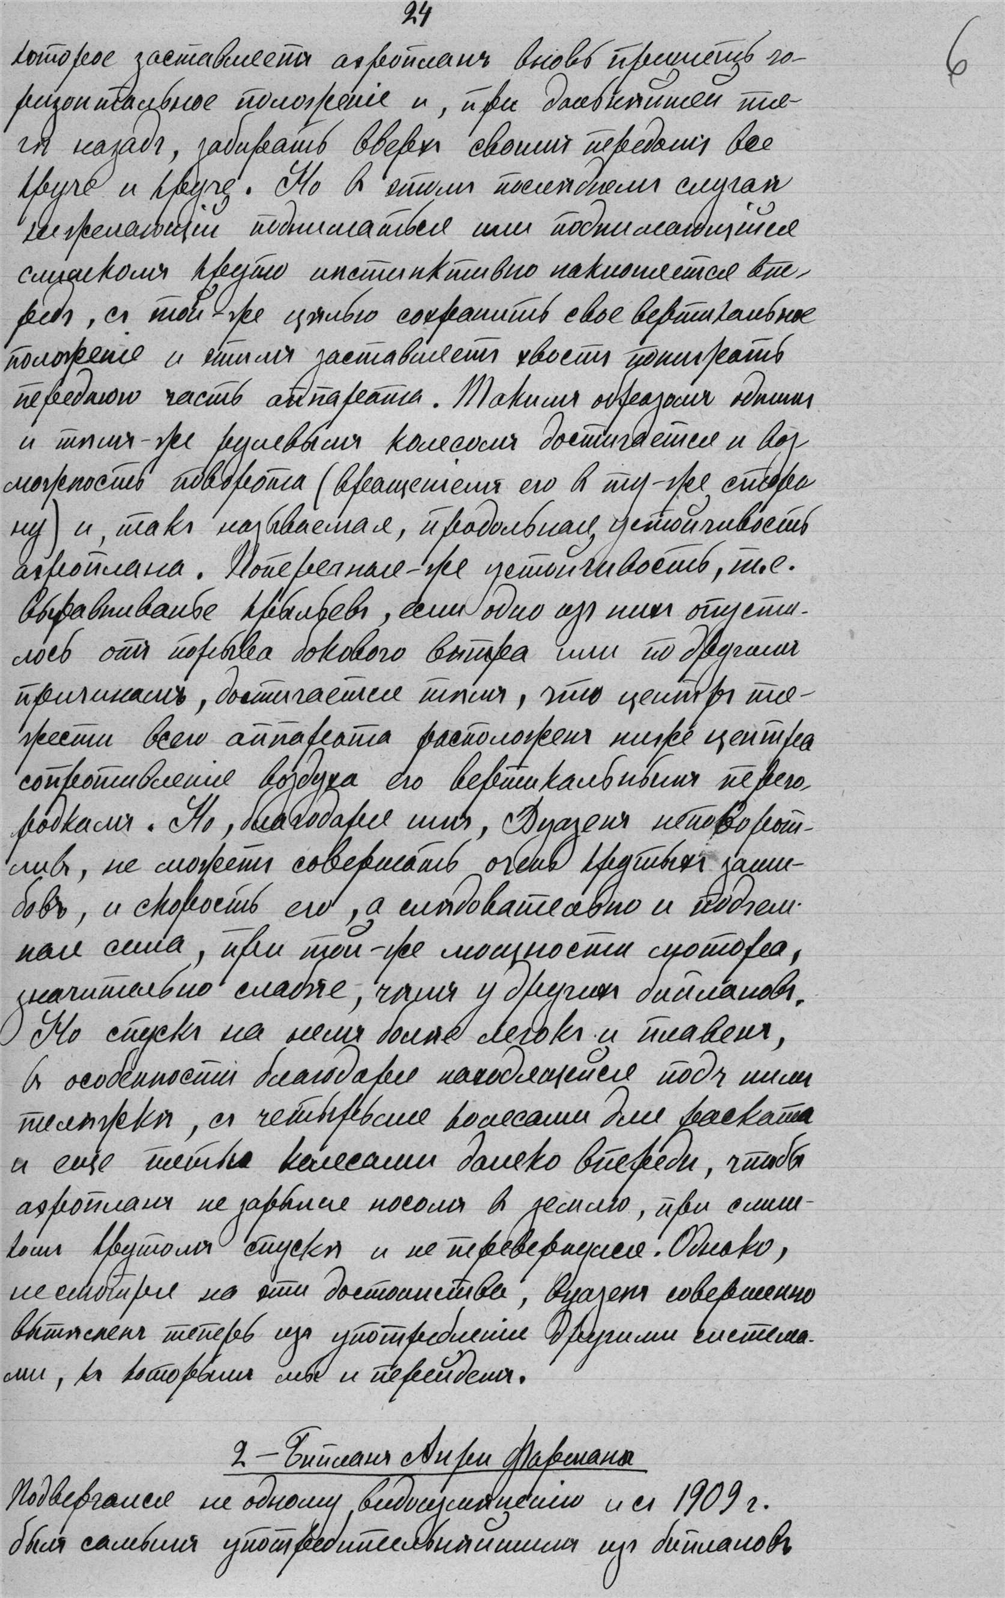 24
6
которое заставляетъ аэропланъ вновь принять го-
ризонтальное положеніе и, при дальнѣйшей тя-
гѣ назадъ, забирать вверхъ своимъ передомъ все
круче и круче. Но въ этомъ послѣднемъ случаѣ
нежелающій подниматься или поднимающійся
слишкомъ круто инстинктивно наклоняется впе-
редъ, съ той-же цѣлью сохранить свое вертикальное
положеніе и этимъ заставляетъ хвостъ понижать
переднюю часть аппарата. Такимъ образомъ однимъ
и тѣмъ-же рулевымъ колесомъ достигается и воз
можность поворота (вращеніемъ его въ ту-же сторо
ну) и, такъ называемая, продольная устойчивость
аэроплана. Поперечная-же устойчивость, т.е.
выравниванье крыльевъ, если одно изъ нихъ опусти-
лось отъ порыва бокового вѣтра или по другимъ
причинамъ, достигается тѣмъ, что центръ тя-
жести всего аппарата расположенъ ниже центра
сопротивленія воздуха его вертикальнымъ перего-
родкамъ. Но, благодаря имъ, Вуазенъ неповорот-
ливъ, не можетъ совершать очень крутыхъ заги-
бовъ, и скорость его, а слѣдовательно и подъем-
ная сила, при той-же мощности мотора,
значительно слабѣе, чѣмъ у другихъ биплановъ.
Но спускъ на немъ болѣе легокъ и плавенъ,
въ особенности благодаря находящейся подъ нимъ
телѣжкѣ, съ четырьмя колесами для раската
и еще пятымъ колесами далеко впереди, чтобы
аэропланъ не зарылся носомъ въ землю, при слиш-
комъ крутомъ спускѣ и не перевернулся. Однако,
несмотря на эти достоинства, Вуазенъ совершенно
вытѣсненъ теперь изъ употребленія другими система-
ми, къ которымъ мы и перейдемъ.
2 – Бипланъ Анри Фармана
Подвергался не одному видоизмѣненію и съ 1909 г.
былъ самымъ употребительнѣйшимъ изъ биплановъ